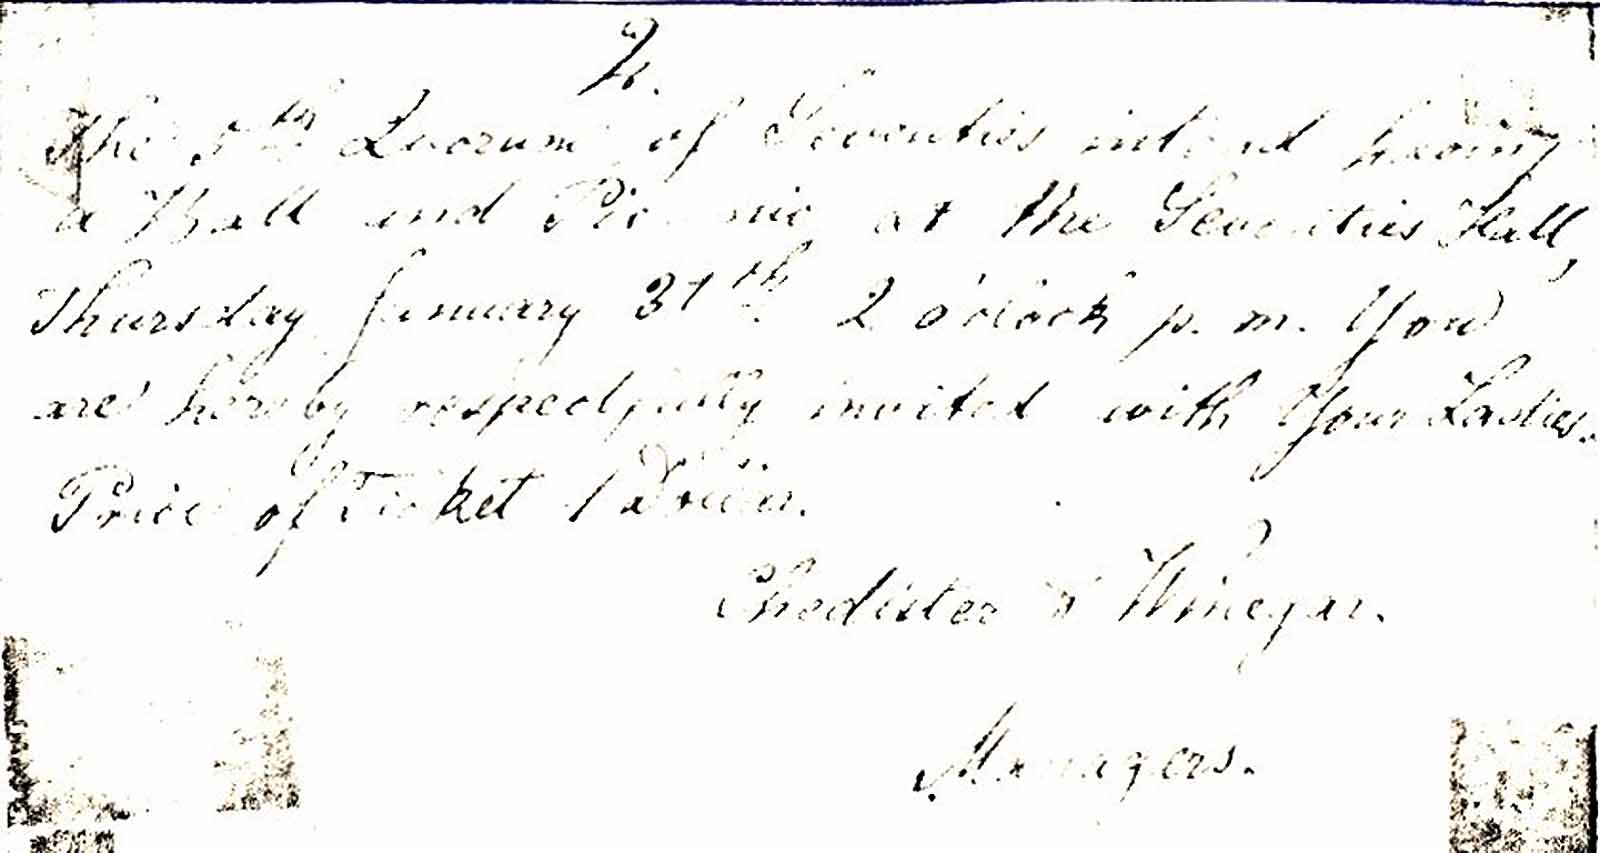 The 5th Quorum of Seventies intend having
a Ball and Pic nic at the Seventies Hall,
Thursday January 31th 2 o'clock p. m. You
are hereby respectfully invited with Your Ladies.
Price of Ticket 1 Dollar.
Chedister & Winegar.
Managers.